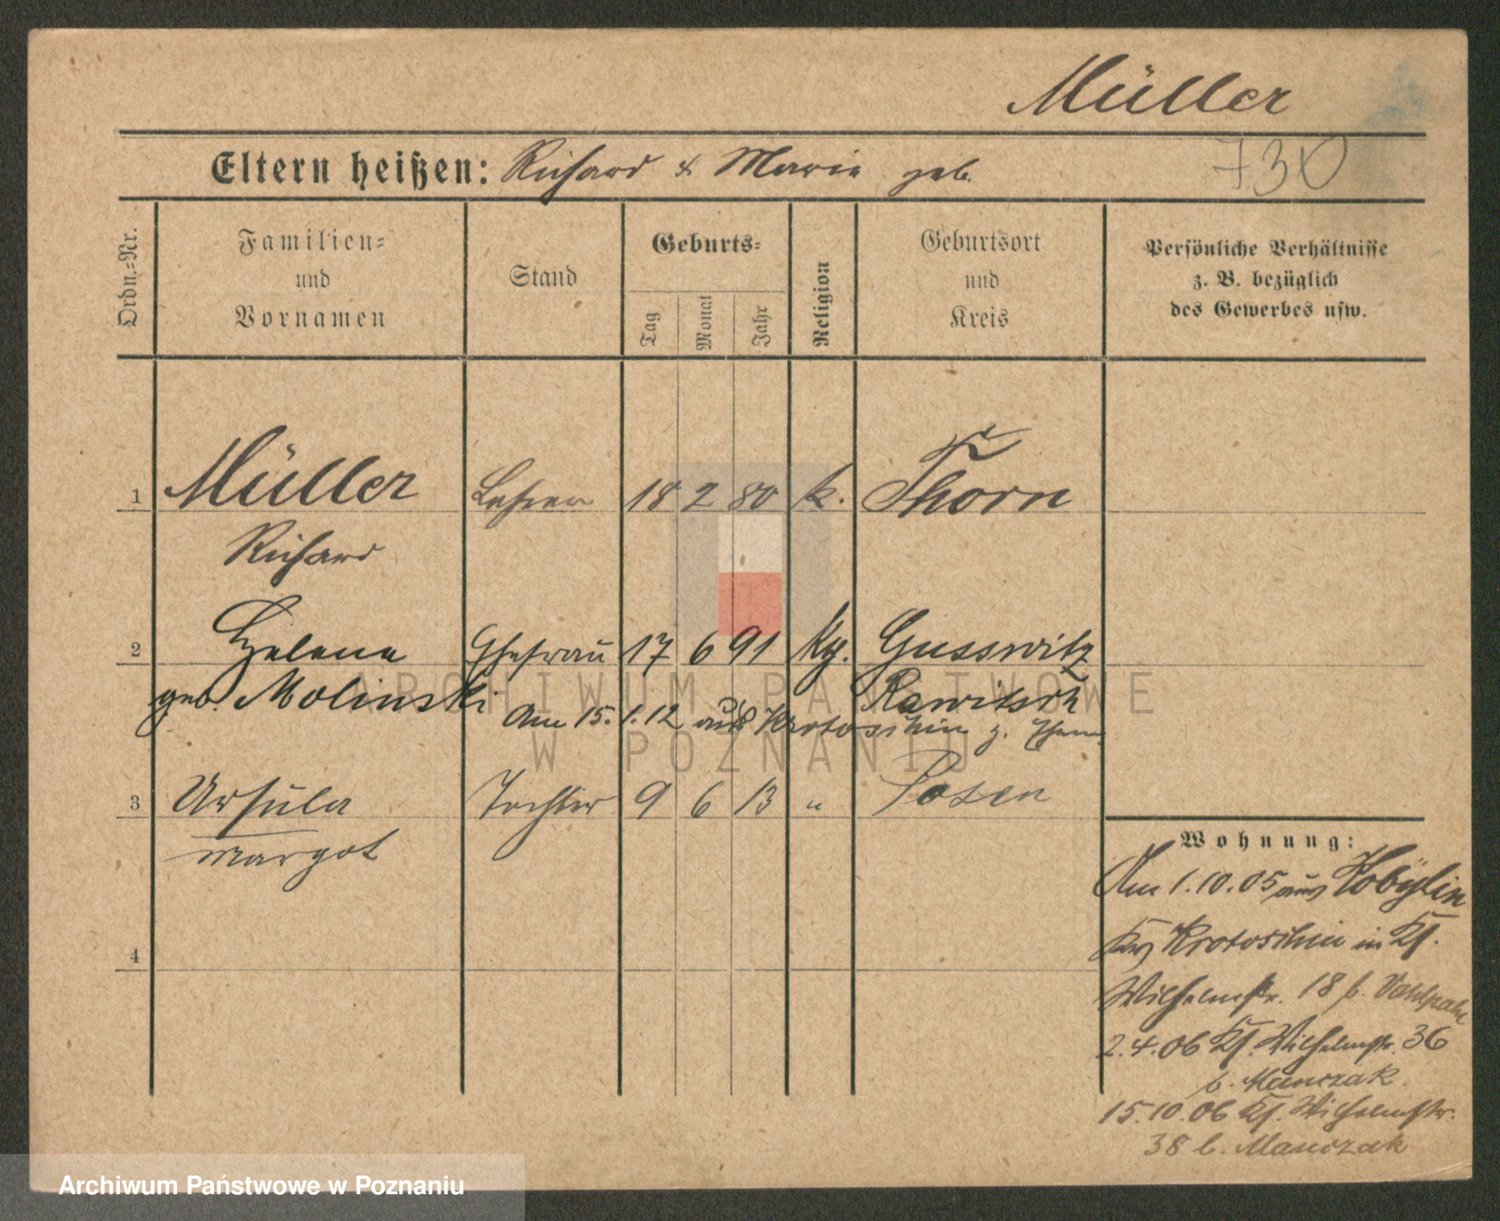 Müller
Eltern heißen: Richard & Marie geb.
730
Ordn.-Nr.
Familien-
und
Vornamen
Stand
Geburts-
Tag
Monat
Jahr
Religion
Geburtsort
und
Kreis
Persönliche Verhältnisse
z. B. bezüglich
des Gewerbes usw.
1 Müller Lehrer 18 2 80 k. Thorn
Richard
2 Helene Ehefrau 17 6 91 Gusswitz
geb. Molinski Rawitsch
Am 15.1.12 aus Krotoschin z.
3 Ursula Tochter 9 6 13 " Posen
Margot
4
Wohnung:
Am 1.10.05 aus Kobylin
Krs Krotoschin in
Wilhelmstr. 18 b.
2.4.06 Wilhelmstr. 36
b. Manczak.
15.10.06 Wilhelmstr.
38 b. Manczak
ARCHIWUM PAŃSTWOWE
W POZNANIU
Archiwum Państwowe w Poznaniu